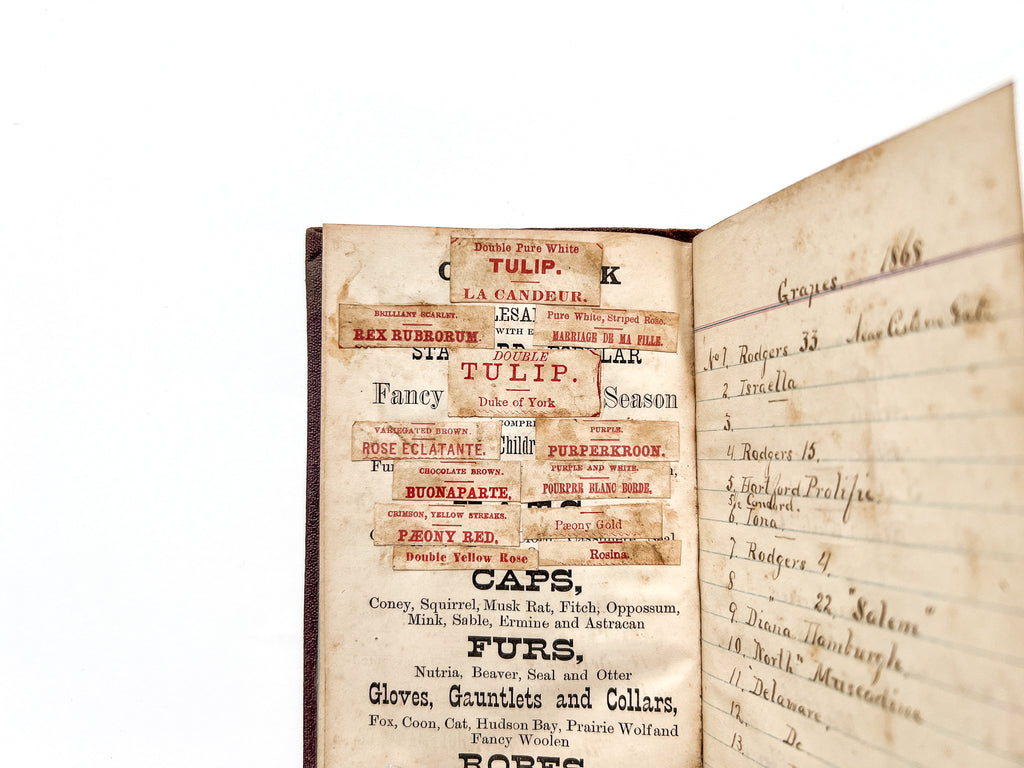 Double Pure White
TULIP.
LA CANDEUR.
BRILLIANT SCARLET.
REX RUBRORUM.
Pure White, Striped Rose.
MARRIAGE DE MA FILLE.
DOUBLE
TULIP.
Duke of York
Fancy
Season
VARIEGATED BROWN.
ROSE ECLATANTÉ.
PURPLE.
PURPERKROON.
CHOCOLATE BROWN.
BUONAPARTE,
PURPLE AND WHITE.
POURPRE BLANC BORDE.
CRIMSON, YELLOW STREAKS.
PÆONY RED,
Pæony Gold
Double Yellow Rose
Rosina.
CAPS,
Coney, Squirrel, Musk Rat, Fitch, Oppossum,
Mink, Sable, Ermine and Astracan
FURS,
Nutria, Beaver, Seal and Otter
Gloves, Gauntlets and Collars,
Fox, Coon, Cat, Hudson Bay, Prairie Wolf and
Fancy Woolen
ROBES
Grapes. 1868
No 1. Rodgers 33 Near Cistern
2. Israella
3.
4 Rodgers 15.
5. Hartford Prolific.
5½ Concord.
6. Iona
7. Rodgers 4.
8 " 22, "Salem"
9. Diana Hamburgh.
10. "North" Muscadine
11. Delaware,
12. Do
13.